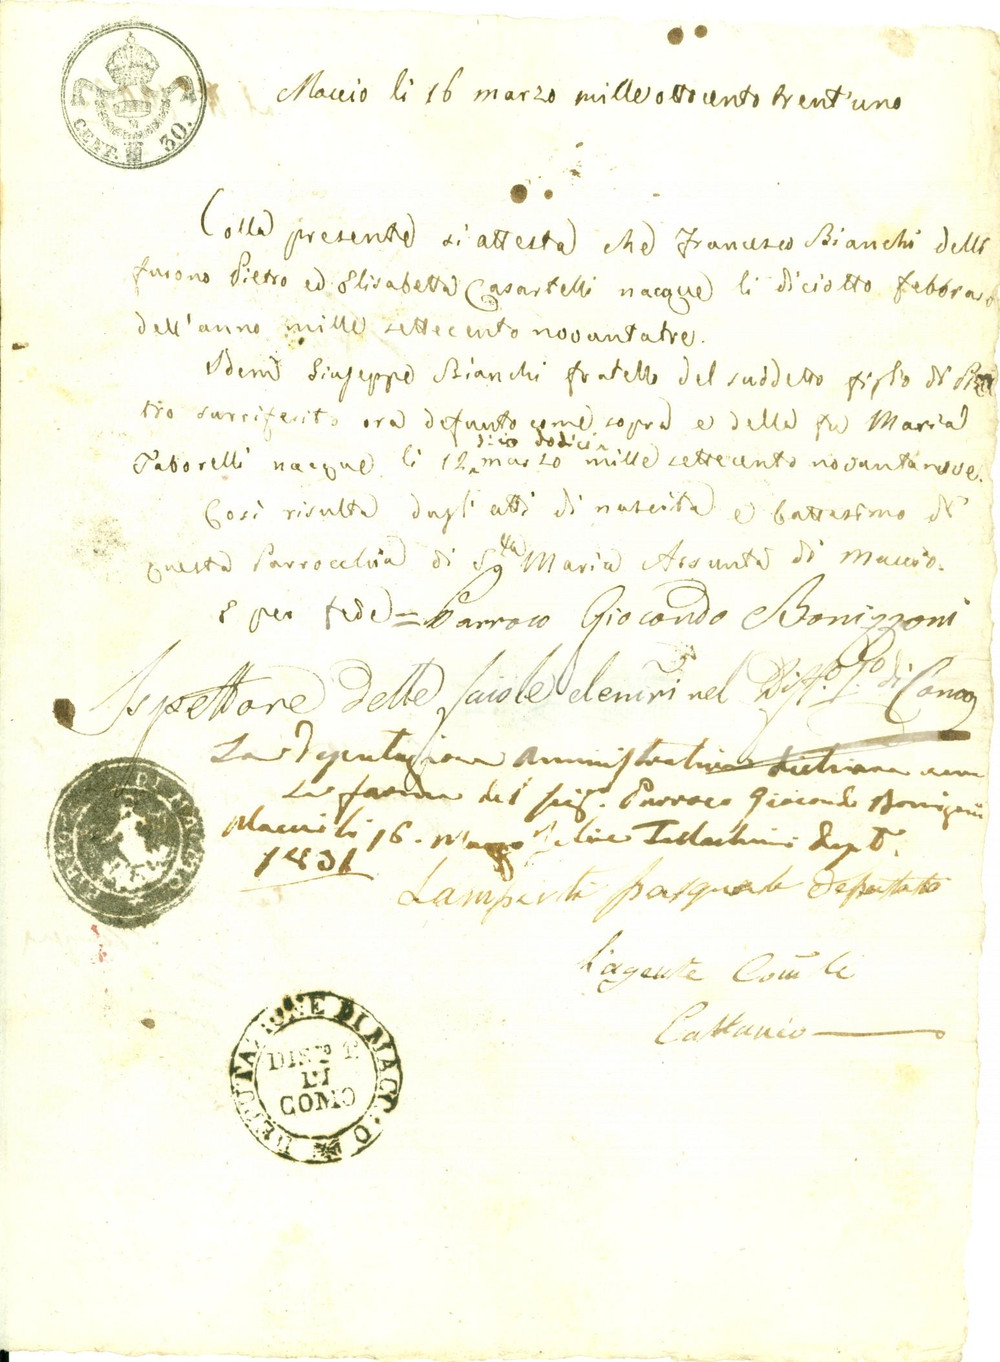 CENT. 30.
Maccio li 16 marzo mille ottocento trent'uno
Colla presente si attesta che Francesco Bianchi delli
furono Pietro ed Elisabetta Casartelli nacque li diciotto febbraro
dell'anno mille settecento novantatre.
Idem Giuseppe Bianchi fratello del suddetto figlio di Pie
tro surriferito ora defunto come sopra e della fu Maria
dico dodici
Taborelli nacque li 12 marzo mille settecento novantanove.
Così risulta dagli atti di nascita e battesimo di
questa Parrocchia di S.ta Maria Assunta di Maccio.
E per fede = Parroco Giocondo Bonizzoni
Ispettore delle scuole elem.ri nel Dist.o I.o di Como
La Deputazione Amministrativa dichiara vera
La firma del Sig.r Parroco Giocondo Bonizzoni
Maccio li 16. Marzo
1831
Lamperti Pasquale Deputato
L'agente Com.le
Cattaneo
DI MACCIO
DEPUTAZIONE DI MACCIO
DIS.TO I.
DI
COMO